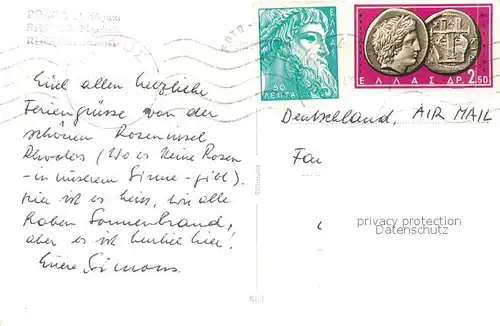 ΕΛΛΑΣ
50
ΛΕΠΤΑ
ΕΛΛΑΣ ΔΡ. 2.50
Euch allen herzliche
Feriengrüsse von der
schönen Roseninsel
Rhodos (wo es keine Rosen
- in unserem Sinne - gibt).
hier ist es heiss, wir alle
haben Sonnenbrand,
aber es ist herrlich hier!
Eure Simons.
Deutschland, AIR MAIL
Fa
privacy protection
Datenschutz